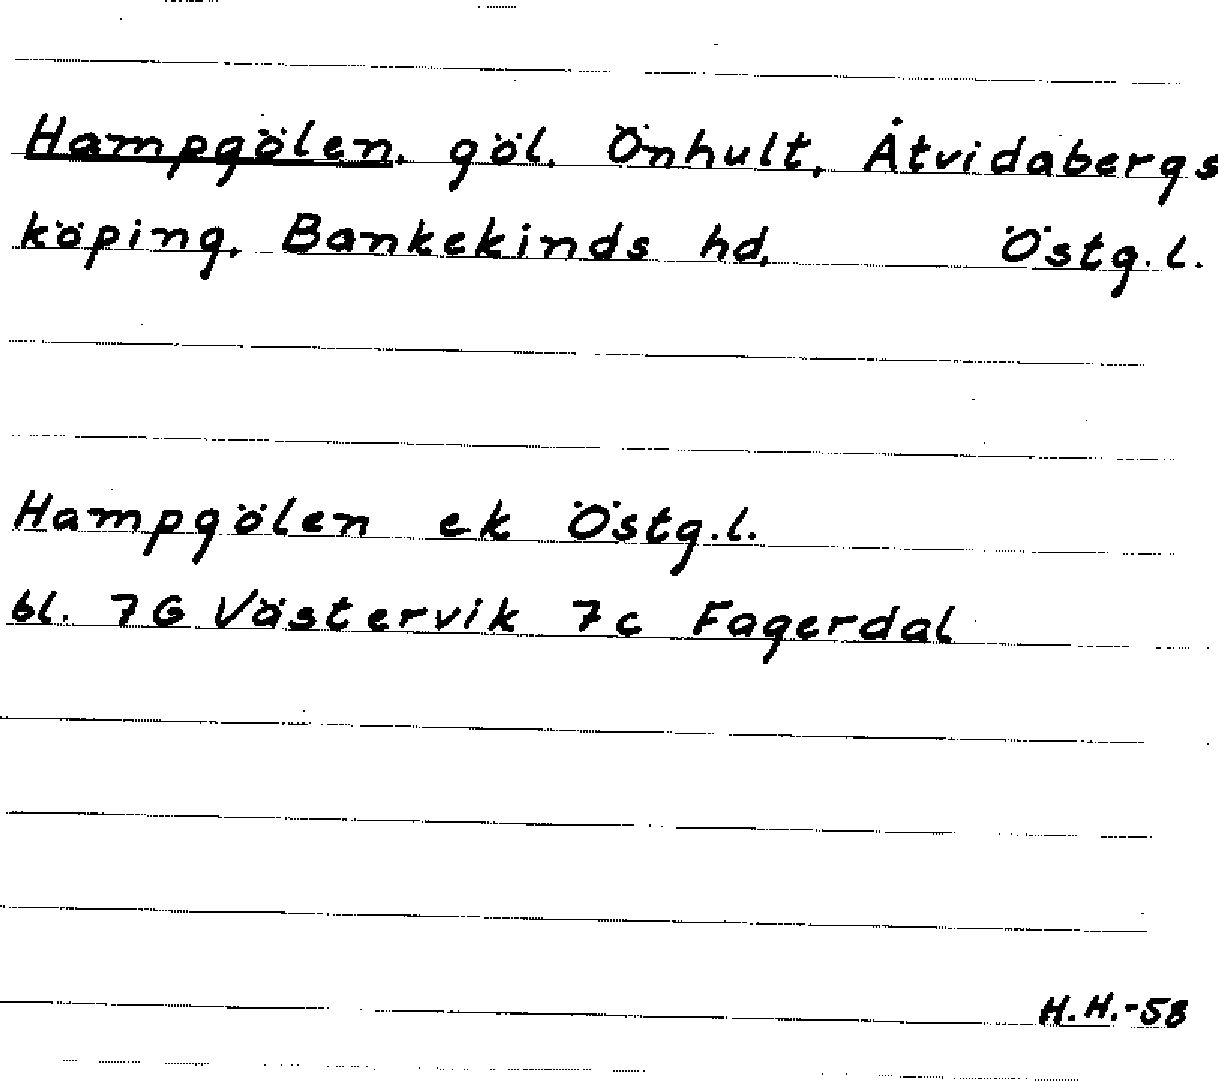 Hampgölen, göl, Önhult, Åtvidabergs
köping, Bankekinds hd, Östg.l.
Hampgölen ek Östg.l.
bl. 7G Västervik 7c Fagerdal
H.H.-58